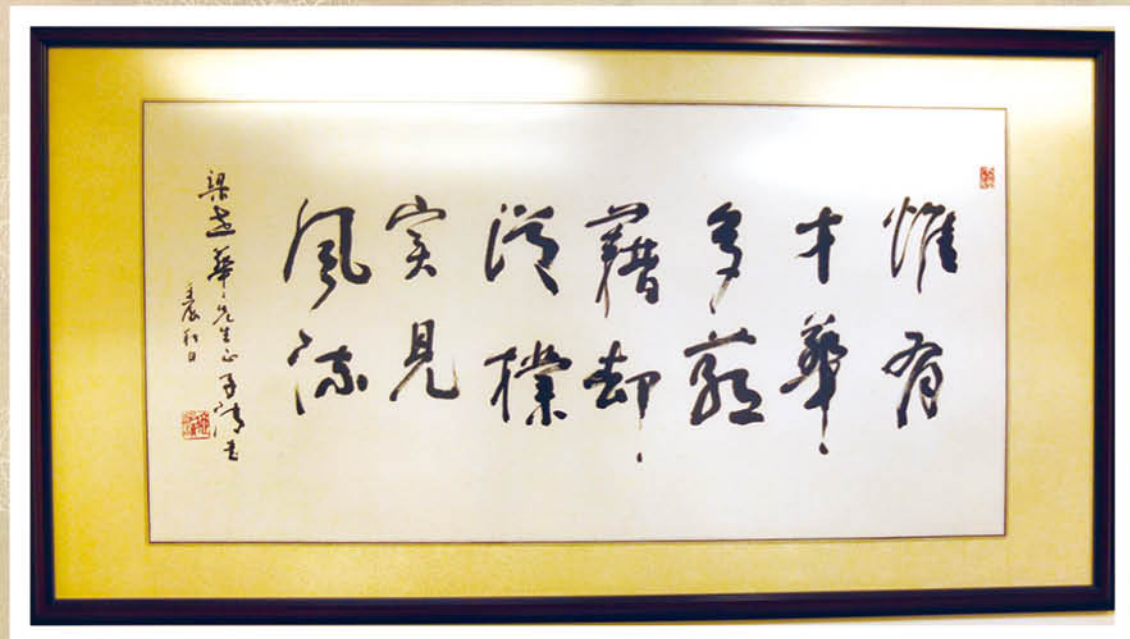 惟有
才華
多蘊
藉却
從樸
实見
風流
梁建華先生正 子清书
壬辰秋日